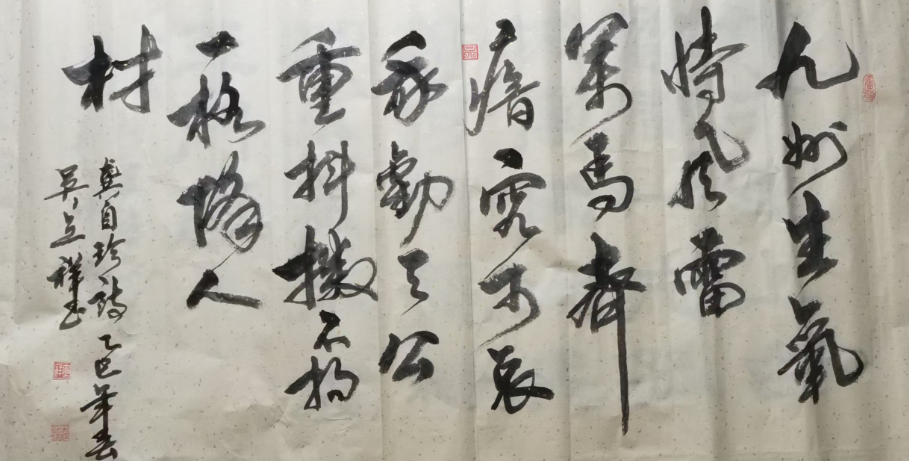 九州生氣
恃風雷
萬馬齊
瘖究可哀
我勸天公
重抖擻不拘
一格降人
材
龔自珍詩乙巳年春
吴立祥書